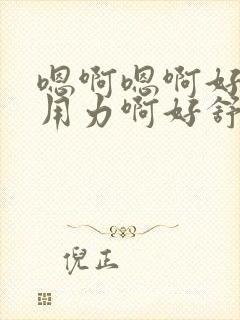 嗯啊嗯啊好
用力啊好舒
倪正